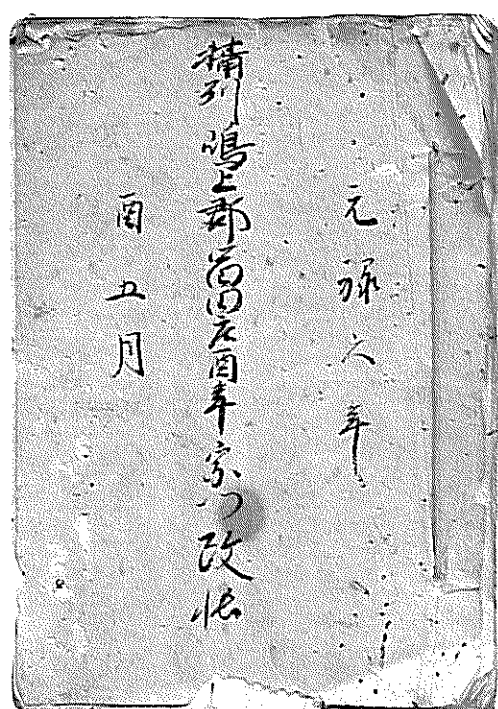 元禄六年
摂州嶋上郡富田庄酉年宗門改帳
酉五月